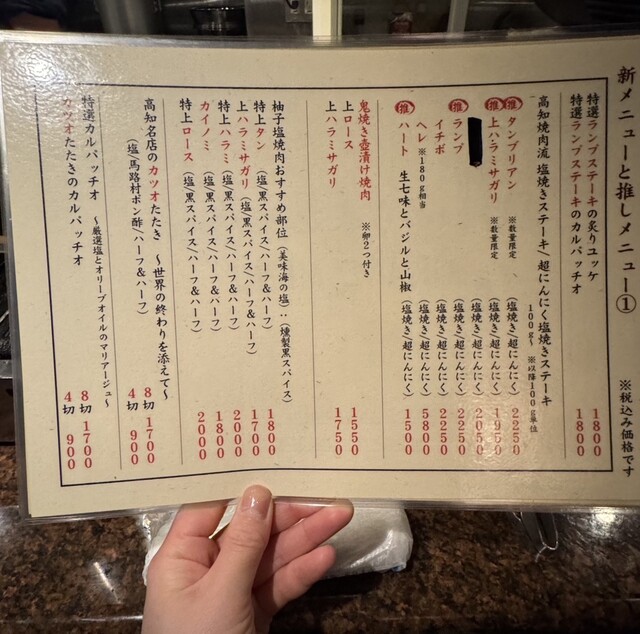 新メニューと推しメニュー① ※税込み価格です
特選ランプステーキの炙りユッケ 1800
特選ランプステーキのカルパッチオ 1800
高知焼肉流 塩焼きステーキ/超にんにく塩焼きステーキ
100g〜 ※以降100g単位
推 タンブリアン ※数量限定 (塩焼き/超にんにく) 2250
推 上ハラミサガリ ※数量限定 (塩焼き/超にんにく) 1950
(塩焼き/超にんにく) 2050
推 ランプ (塩焼き/超にんにく) 2250
イチボ (塩焼き/超にんにく) 2250
ヘレ ※180g相当 (塩焼き/超にんにく) 5800
推 ハート 生七味とバジルと山椒 (塩焼き/超にんにく) 1500
鬼焼き壺漬け焼肉 ※卵2つ付き
上ロース 1550
上ハラミサガリ 1750
柚子塩焼肉おすすめ部位 (美味海の塩):(燻製黒スパイス)
特上タン (塩/黒スパイス/ハーフ&ハーフ) 1800
上ハラミサガリ (塩/黒スパイス/ハーフ&ハーフ) 1700
特上ハラミ (塩/黒スパイス/ハーフ&ハーフ) 2000
カイノミ (塩/黒スパイス/ハーフ&ハーフ) 1800
特上ロース (塩/黒スパイス/ハーフ&ハーフ) 2000
高知名店のカツオたたき 〜世界の終わりを添えて〜 8切 1700
(塩/馬路村ポン酢/ハーフ&ハーフ) 4切 900
特選カルパッチオ 〜厳選塩とオリーブオイルのマリアージュ〜
8切 1700
カツオたたきのカルパッチオ 4切 900